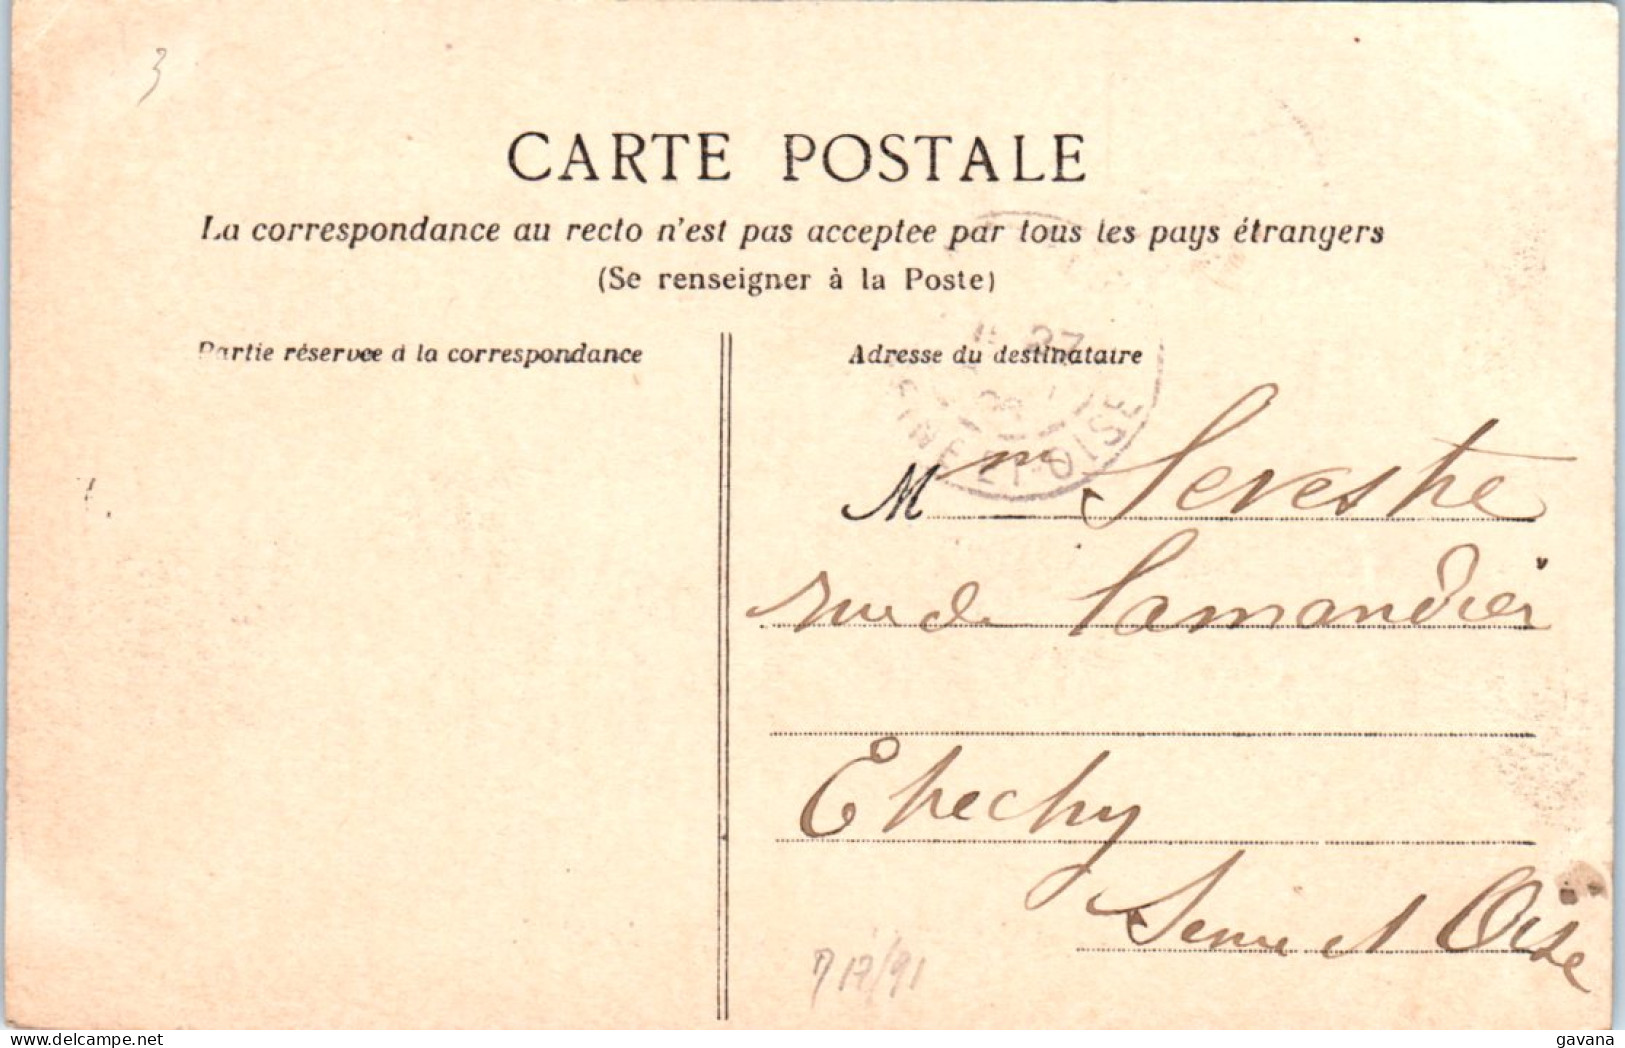 3
CARTE POSTALE
La correspondance au recto n'est pas acceptee par tous les pays étrangers
(Se renseigner à la Poste)
Partie réservee à la correspondance
Adresse du destinataire
27
SEINE-ET-OISE
Mme Sevestre
rue de Lamandier
Etrechy
Seine et Oise
17/91
gavana